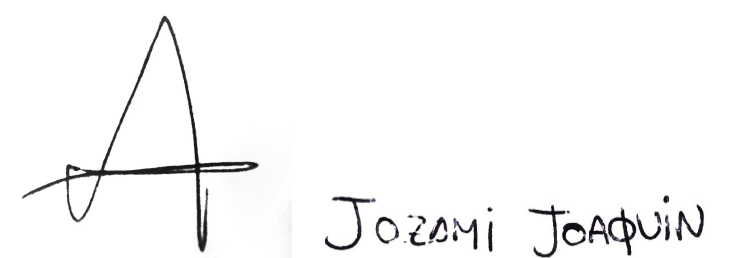 JOZAMI JOAQUIN